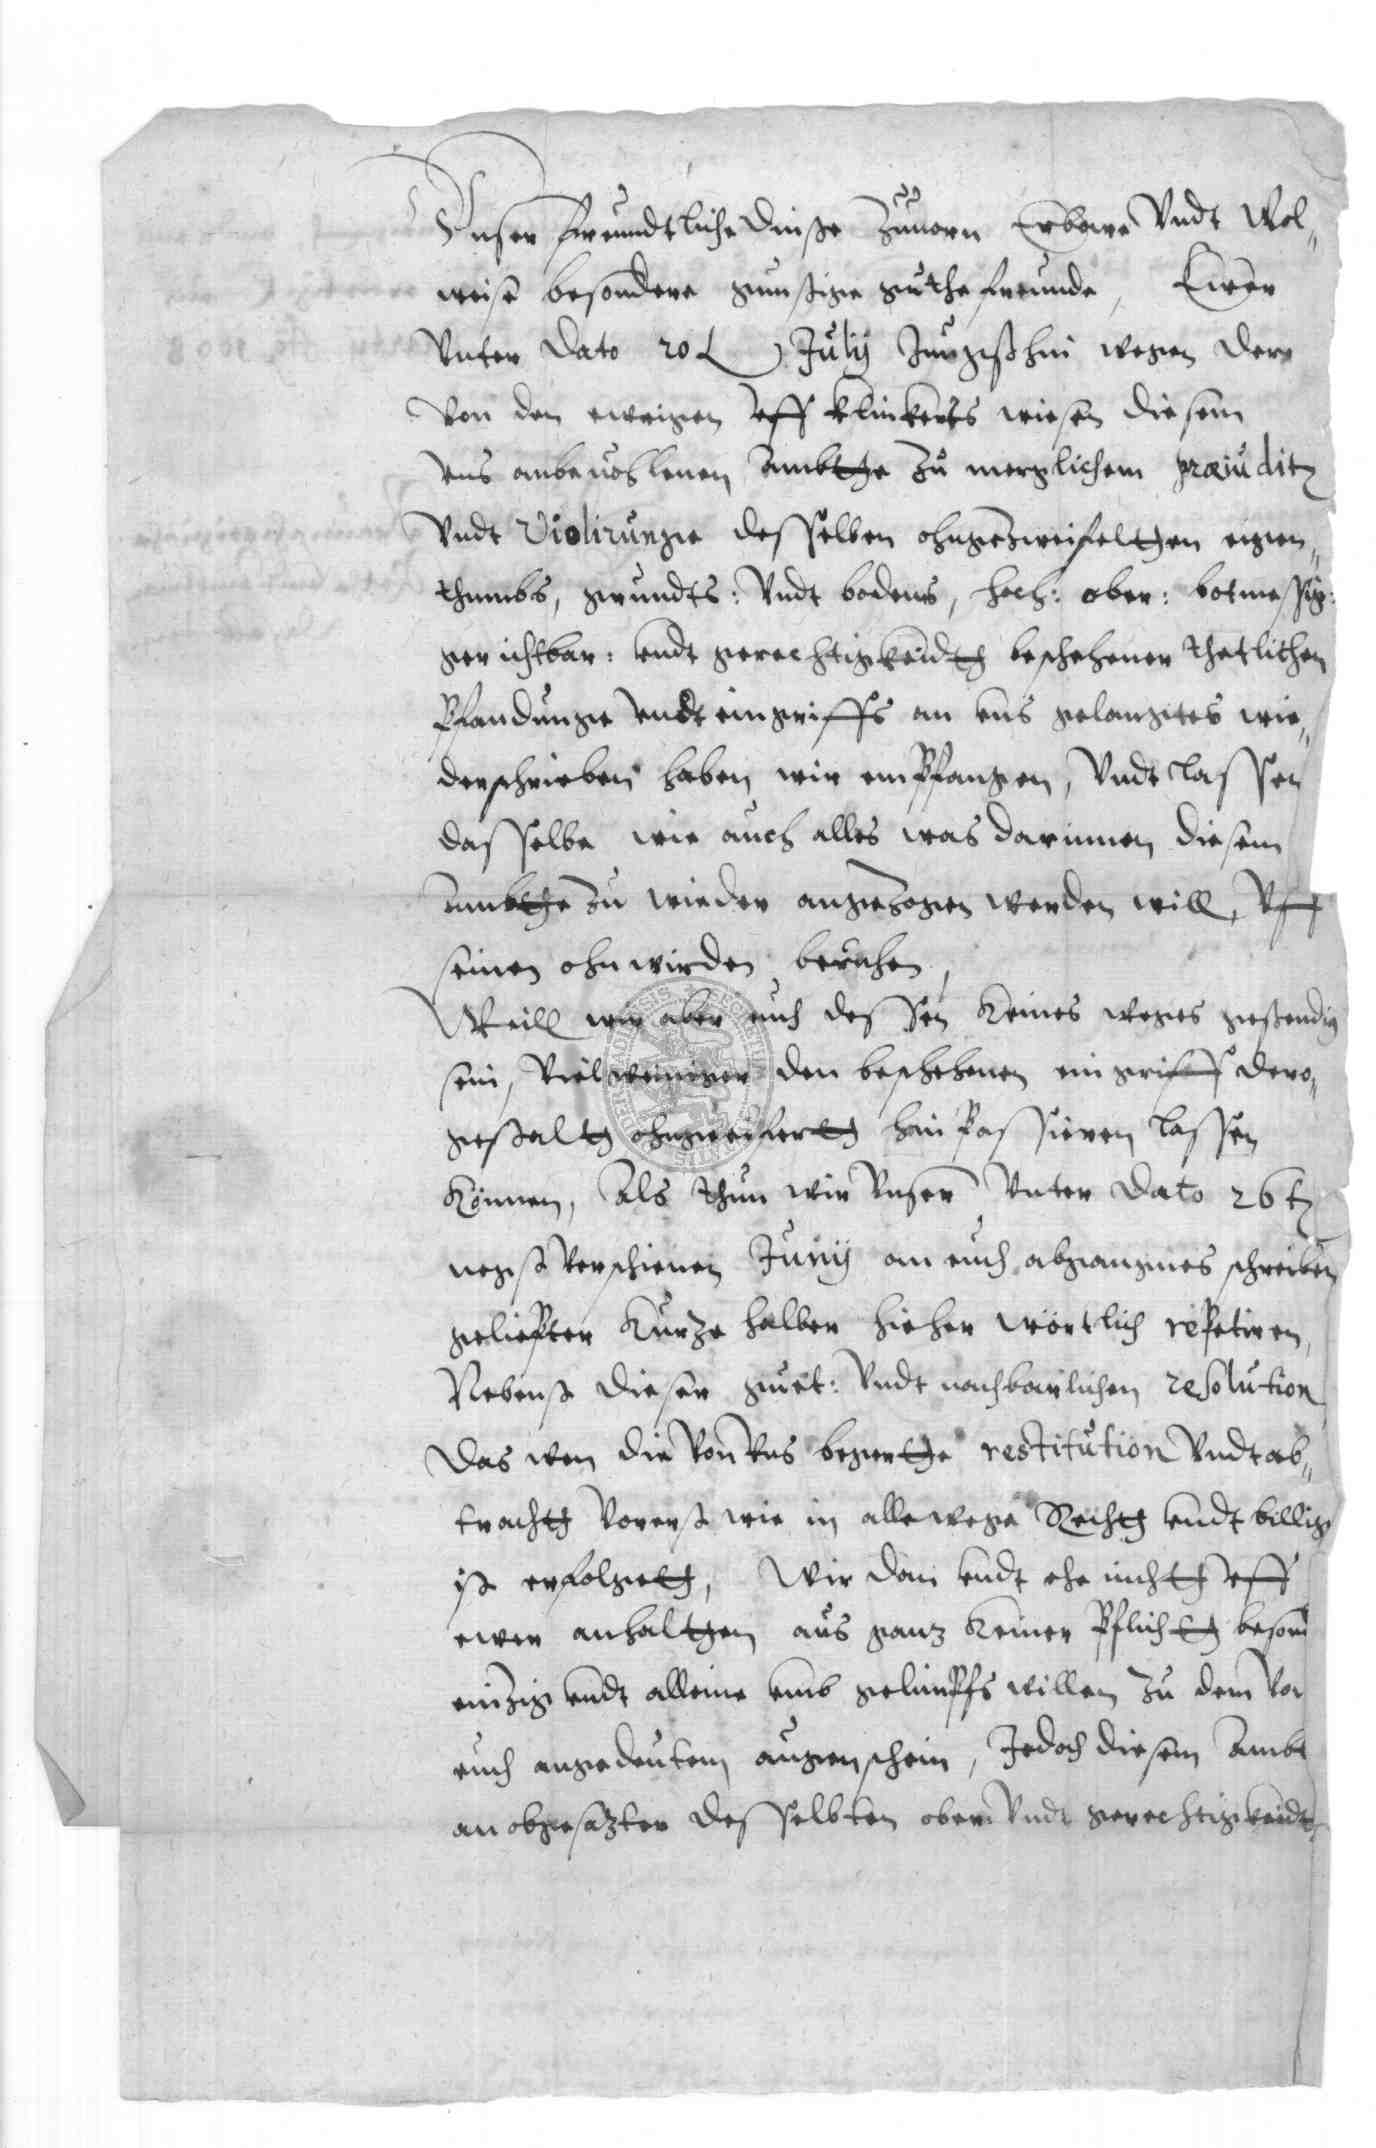 Vnser freundtliche dinste zuuorn Erbare Vndt Wol„
weise besondere gunstige guthe freunde, Ewer
Vnter dato 20 t July Jungsthin wegen der
Von den ewrigen vff Klinkerts wiesen diesem
vns anbeuohlenen Ambthe zu merglichem præiuditz
Vndt Violirunge desselben ohngezweifelthen eigen„
thumbs, grundts: Vndt bodens, hoch: ober: botmessig:
gerichtbar: vndt gerechtigkeidth beschehener thetlichen
Pfandunge vndt eingriffs an vns gelangtes wie„
derschrieben haben wir empfangen, Vndt lassen
dasselbe wie auch alles was darinnen diesem
Ambthe zu wieder angezogen werden will, vff
seinen ohnwirden beruhen,
Weill wir aber euch dessen keines weges gestendig
sein, Viel weiniger den beschehenen eingriff dero„
gestalth ohngeeifferth hin passieren lassen
können, Als thun wir Vnser Vnter dato 26 t
negst verschienen Junij an euch abgangnes schreiben
geliepter Kurze halber hieher wörtlich repetiren,
Nebenst dieser guet: Vndt nachbarlichen resolution
das wen die von vns begerthe restitution Vndt ab„
trachth Vorerst wie in allewege Rechth vndt billig
ist erfolgeth, Wir dan vndt ehe nichth vff
ewer anhalthen aus ganz keiner Pflichth besond
einzig vndt alleine vmb gelimpfs willen zu dem Von
euch angedeutem augenschein, Jedoch diesem Ambt
an obgesatzter desselbten ober: Vndt gerechtigkeidt